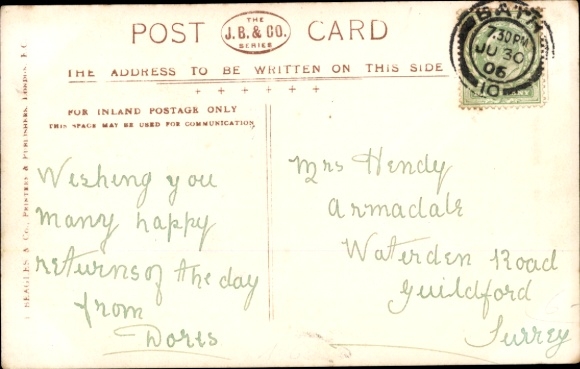 POST CARD
THE
J.B. & CO.
SERIES
THE ADDRESS TO BE WRITTEN ON THIS SIDE
FOR INLAND POSTAGE ONLY
THIS SPACE MAY BE USED FOR COMMUNICATION
BEAGLES & CO., PRINTERS & PUBLISHERS, LONDON, E.C.
Wishing you
many happy
returns of the day
from
Doris
BATH
7.30PM
JU 30
06
10
Mrs Hendy
Armadale
Waterden Road
Guildford
Surrey